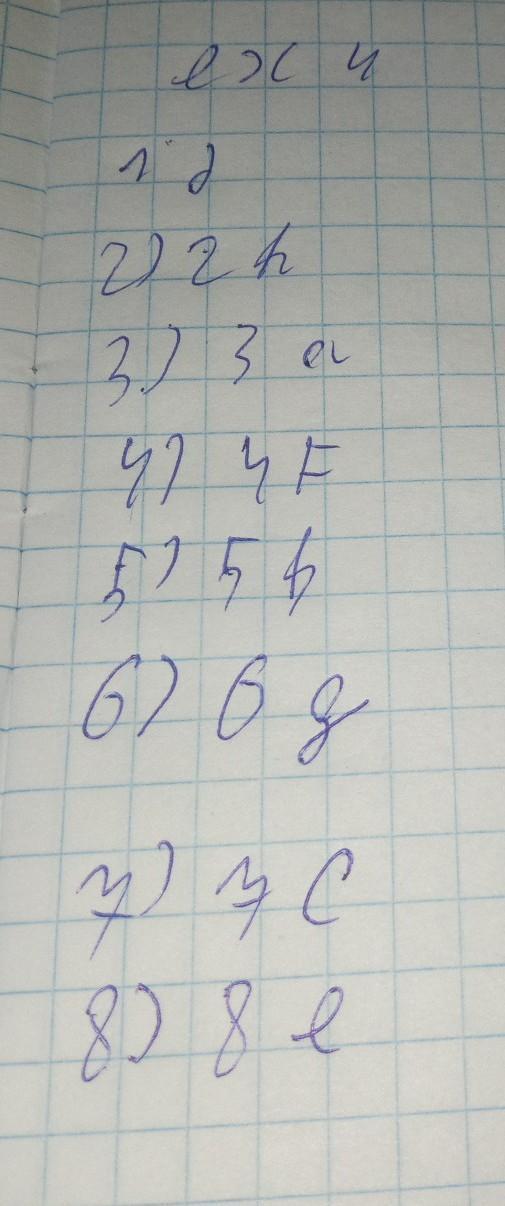 ex 4
1 d
2) 2 h
3) 3 a
4) 4 F
5) 5 b
6) 6 g
7) 7 C
8) 8 e